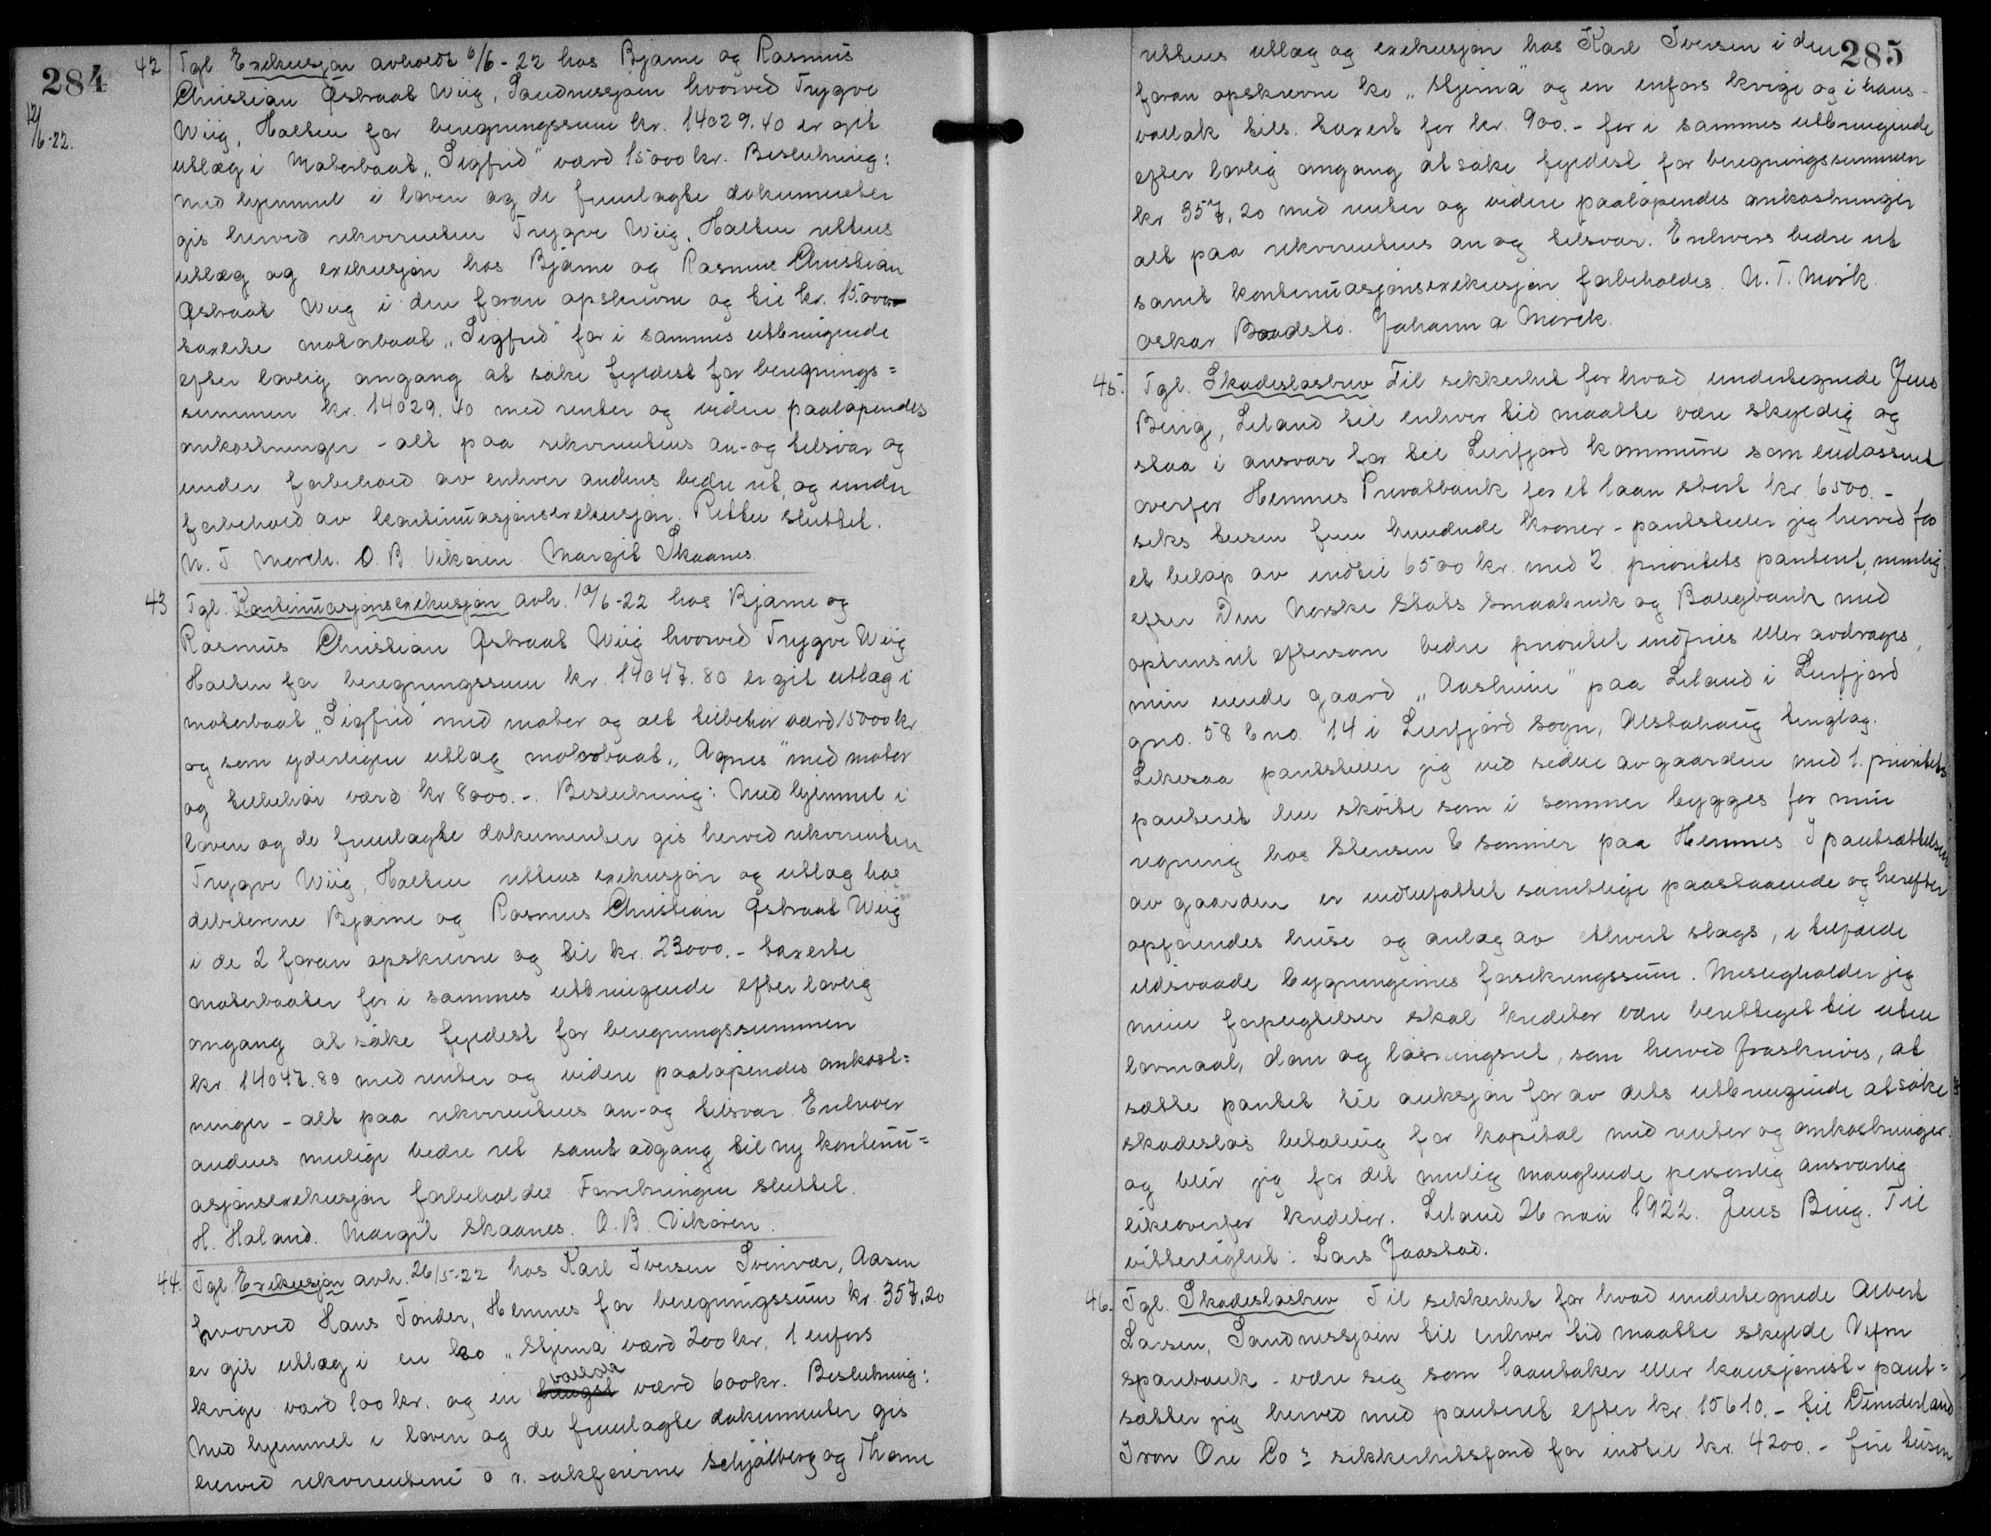 284
12/6-22.
42 Tgl Exekusjon avholdt 6/6-22 hos Bjarne og Rasmus
Christian Østraat Wiig, Sandnessjøen hvorved Trygve
Wiig, Halten for beregningssum kr. 14029.40 er git
utlæg i Motorbaat „Sigfrid" værd 15000 kr. Beslutning:
Med hjemmel i loven og de fremlagte dokumenter
gis herved rekvirenten Trygve Wiig, Halten rettens
utlæg og exekusjon hos Bjarne og Rasmus Christian
Østraat Wiig i den foran opskrevne og til kr. 15.000
taxerte motorbaat „Sigfrid" for i sammes utbringende
efter lovlig omgang at søke fyldest for beregnings=
summen kr. 14029.40 med renter og videre paaløpendes
omkostninger - alt paa rekvirentens an- og tilsvar og
under forbehold av enhver andens bedre ret, og under
forbehold av kontinuasjonsexekusjon. Retten sluttet.
N. T. Mørch. O. B. Vikøren. Margit Skaanes.
43 Tgl. Kontinuasjonsexekusjon avh. 10/6-22 hos Bjarne og
Rasmus Christian Østraat Wiig hvorved Trygve Wiig
Halten for beregningssum kr. 14047.80 er git utlæg i
motorbaat „Sigfrid" med motor og alt tilbehør værd 15000 kr.
og som yderligere utlæg motorbaat „Agnes" med motor
og tilbehør værd kr 8000.-. Beslutning: Med hjemmel i
loven og de fremlagte dokumenter gis herved rekvirenten
Trygve Wiig, Halten rettens exekusjon og utlæg hos
debitorene Bjarne og Rasmus Christian Østraat Wiig
i de 2 foran opskrevne og til kr. 23000.- taxerte
motorbaater for i sammes utbringende efter lovlig
omgang at søke fyldest for beregningssummen
kr. 14047.80 med renter og videre paaløpendes omkost=
ninger - alt paa rekvirentens an- og tilsvar. Enhver
andens mulige bedre ret samt adgang til ny kontinu=
asjonsexekusjon forbeholdes Forretningen sluttet.
H. Haland. Margit Skaanes. O. B. Vikøren.
44. Tgl Exekusjon avh. 26/5-22 hos Karl Iversen Svinvær, Aasen
hvorved Hans Tønder, Hemnes for beregningssum kr. 357,20
er git utlæg i en ko „Stjerna" værd 200 kr. 1 enfors
kvige værd 100 kr. og en hengst vallak værd 600 kr. Beslutning:
Med hjemmel i loven og de fremlagte dokumenter gis
herved rekvirenten o. r. sakførerne Schjølberg og Thorne
285
rettens utlæg og exekusjon hos Karl Iversen i den
foran opskrevne ko „Stjerna" og en enfors kvige og i hans
vallak tils. taxert for kr. 900.- for i sammes utbringende
efter lovlig omgang at søke fyldest for beregningssummen
kr 357,20 med renter og videre paaløpendes omkostninger
alt paa rekvirentens an og tilsvar. Enhvers bedre ret
samt kontinuasjonsexekusjon forbeholdes. N. T. Mørk.
Oskar Baadslo. Johann a Mørck.
45. Tgl. Skadesløsbrev Til sekkerhet for hvad undertegnede Jens
Bing, Leland til enhver tid maatte være skyldig og
staa i ansvar for til Leirfjord kommune som endossent
overfor Hemnes Privatbank for et laan stort kr. 6500.-
seks tusen fem hundrede kroner - pantsteller jeg herved for
et beløp av indtil 6500 kr. med 2 prioritets panteret, nemlig
efter Den Norske Stats Smaabruk og Boligbank med
optrinsret eftersom bedre prioritet indfries eller avdrages,
min eiende gaard „Aasheim" paa Leland i Leirfjord
gno. 58 bno. 14 i Leirfjord sogn, Alstahaug tinglag.
Likesaa pantsteller jeg ved siden av gaarden med 1. prioritets
panteret den skøite som i sommer bygges for min
regning hos Stensen & sønner paa Hemnes. I pantsættelsen
av gaarden er indbefattet samtlige paastaaende og herefter
opførendes huse og anlæg av ethvert slags, i tilfælde
ildsvaade bygningernes forsikringssum. Misligholder jeg
mine forpligtelser skal kreditor være berettiget til uten
lovmaal, dom og løsningsret, som herved fraskrives, at
sætte pantet til auksjon for av dets utbringende at søke
skadesløs betaling for kapital med renter og omkostninger.
og blir jeg for det mulig manglende personlig ansvarlig
likeoverfor kreditor. Leland 26 mai 1922. Jens Bing. Til
vitterlighet: Lars Jaastad.
46. Tgl. Skadesløsbrev Til sekkerhet for hvad undertegnede Albert
Larsen, Sandnessjøen til enhver tid maatte skylde Vefsn
sparebank - være sig som laantaker eller kausjonist - pant=
sætter jeg herved med panteret efter kr. 15610.- til Dunderland
Iron Ore Co's sikkerhetsfond for indtil kr. 4200.- fire tusen